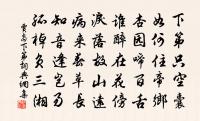 下第只空囊
如何住帝鄉
杏園啼百舌
誰醉在花傍
淚落故山遠
病來春草長
知音逢豈易
孤棹負三湘
賈島下第詞典網